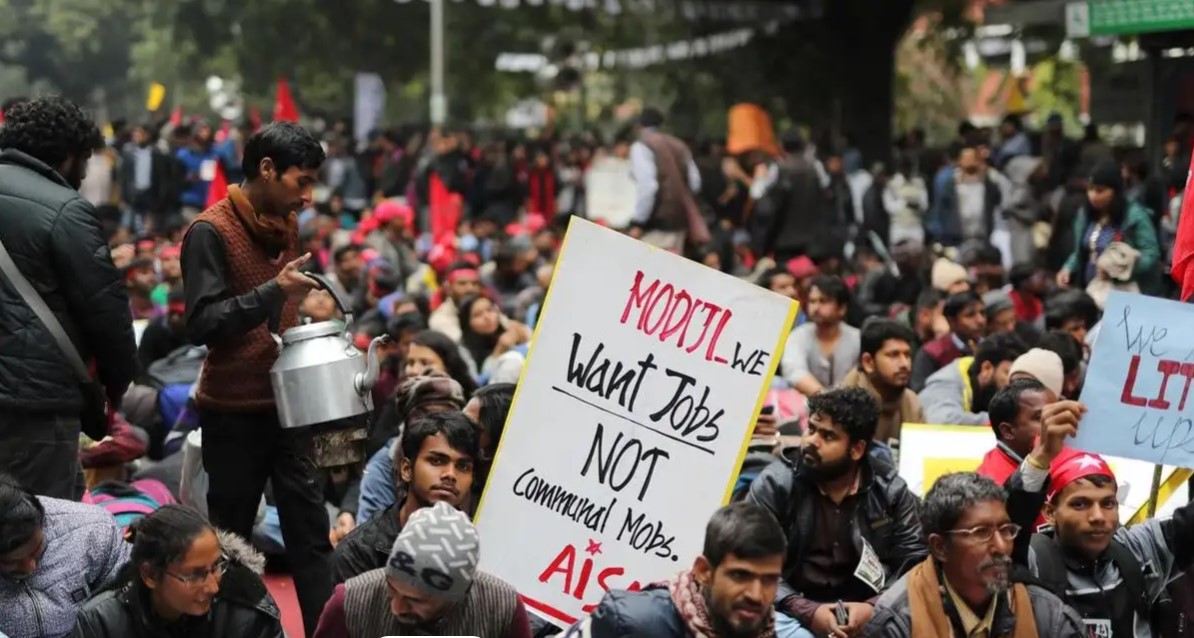 MODIJI WE
Want Jobs
NOT
Communal Mobs.
AIS
We
LIT
up